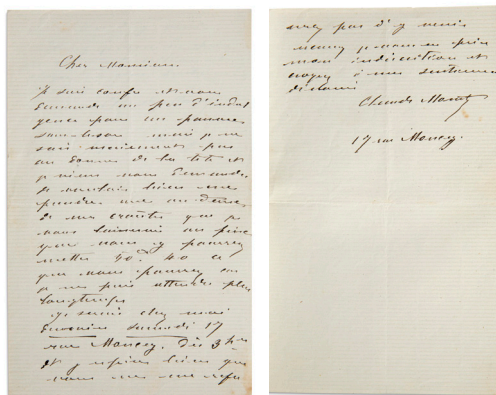 Cher Monsieur
Je suis confus et vous
demande un peu d'indul
gence pour un pauvre
mais je ne
sais vraiment pas
où donner de la tête et
je viens vous demander
je voudrais bien
prendre une ou deux
de mes croûtes que je
vous laisserai au prix
que vous y pourrez
mettre 50. 40 ce
que vous pourrez car
je ne puis attendre plus
longtemps
Je serai chez moi
demain samedi 17
rue Moncey. dès 3 h
et j'espère bien que
vous ne me refu
serez pas d'y venir
mon indiscrétion et
croyez à mes sentiments
Claude Monet
17 rue Moncey.